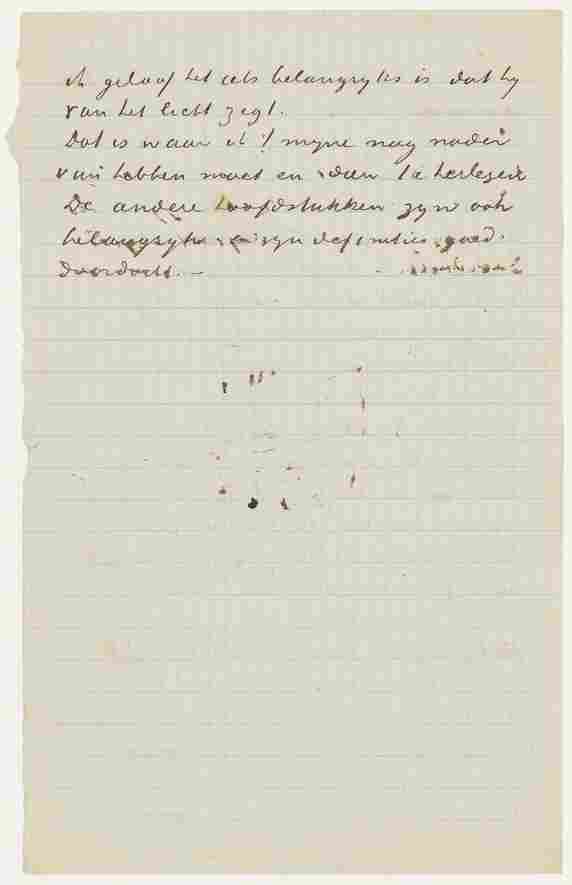 ik geloof het iets belangryks is dat hy
van het licht zegt.
Dat is waar ik 't myne nog nader
van hebben moet en dan te herlezen
De andere hoofdstukken zyn ook
belangryk en zyn definities goed
doordacht. —